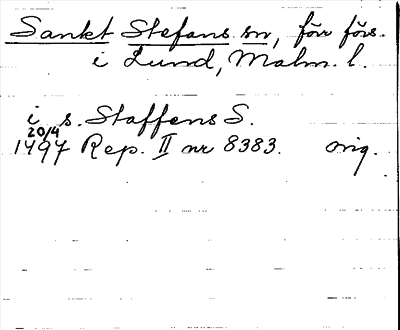 Sankt Stefans sn, förr förs.
i Lund, Malm. l.
i s. Staffens S.
20/4
1497 Rep. II nr 8383. orig.